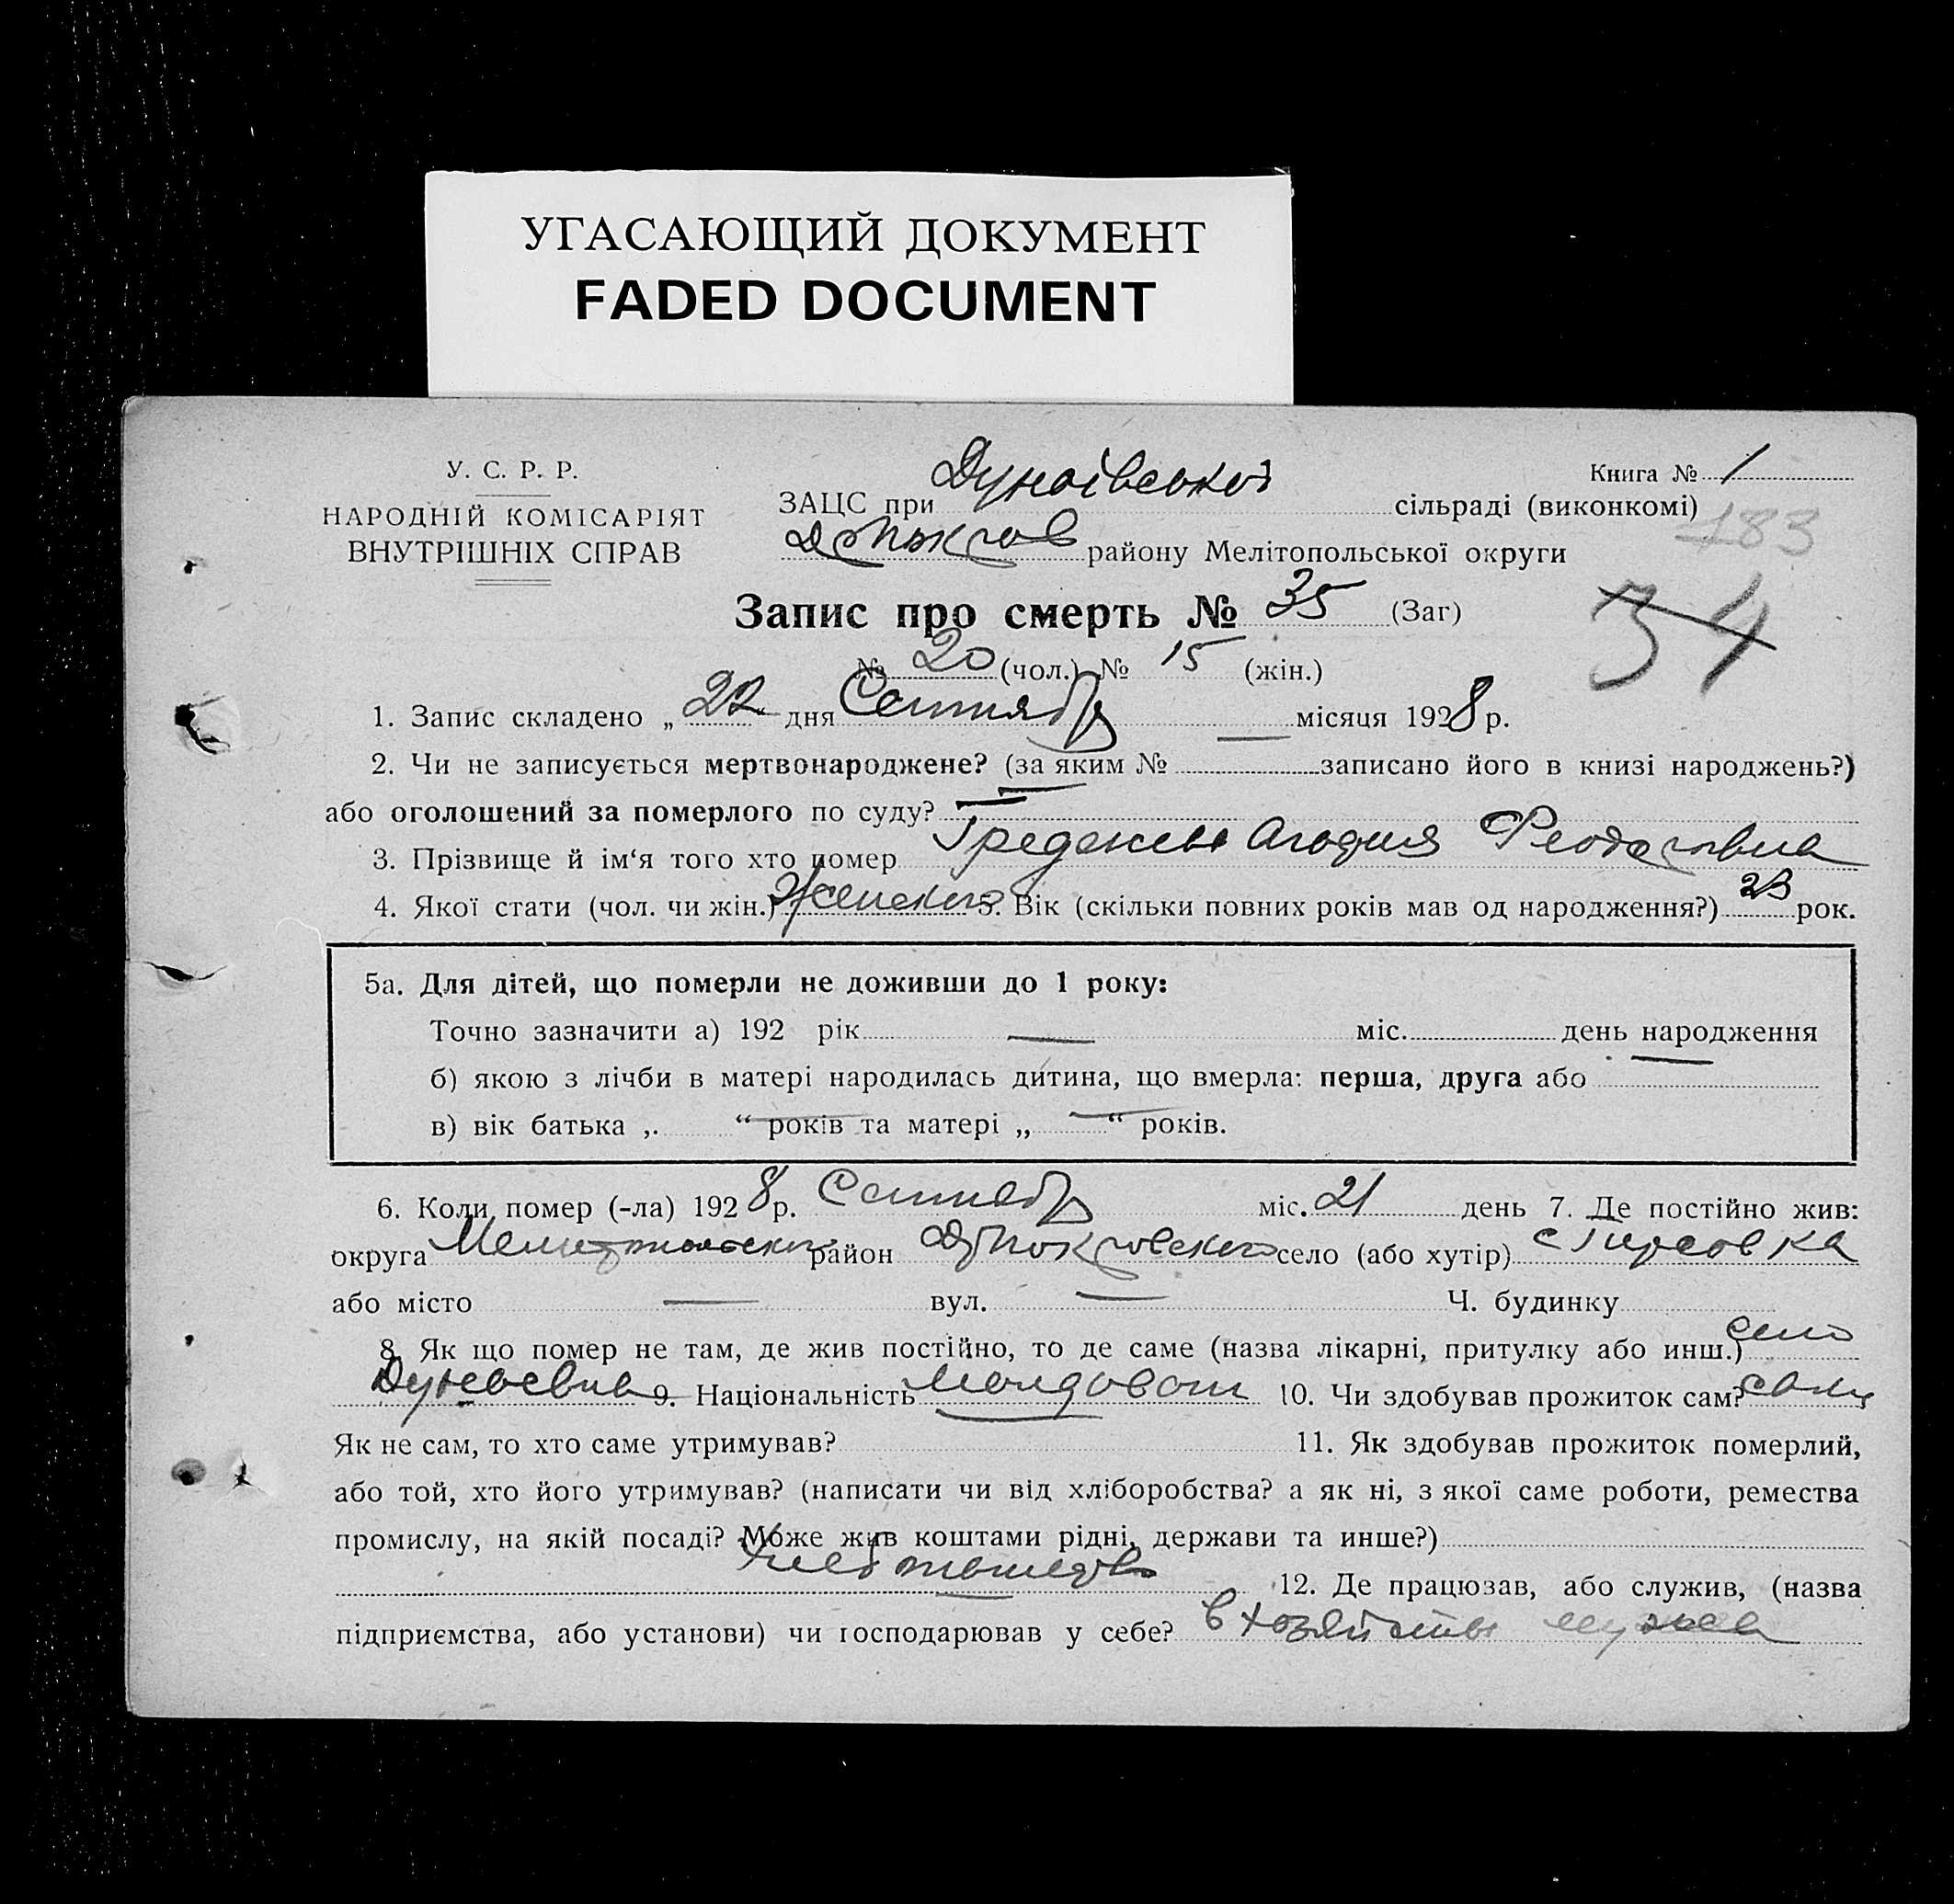 УГАСАЮЩИЙ ДОКУМЕНТ
FADED DOCUMENT
У. С. Р. Р.
НАРОДНІЙ КОМІСАРІЯТ
ВНУТРІШНІХ СПРАВ
Книга № 1
ЗАЦС при Дунаївській сільраді (виконкомі)
183
району Мелітопольської округи
34
Запис про смерть № 35 (Заг)
№ 20 (чол.) № 15 (жін.)
1. Запис складено „ 22 " дня Сентября місяця 1928 р.
2. Чи не записується мертвонароджене? (за яким № записано його в книзі народжень?)
або оголошений за померлого по суду?
3. Прізвище й ім‘я того хто помер
4. Якої стати (чол. чи жін.) Женского 5. Вік (скільки повних років мав од народження?) 23 рок.
5а. Для дітей, що померли не доживши до 1 року:
Точно зазначити а) 192 рік — міс. день народження
б) якою з лічби в матері народилась дитина, що вмерла: перша, друга або —
в) вік батька ,. — “ років та матері „ — “ років.
6. Коли помер (-ла) 1928 р. Сентября міс. 21 день 7. Де постійно жив:
округа Мелитопольского район село (або хутір) с Гирсовка
або місто — вул. — Ч. будинку
8. Як що помер не там, де жив постійно, то де саме (назва лікарні, притулку або инш.) село
Дунаевка 9. Національність Молдован 10. Чи здобував прожиток сам? сам
Як не сам, то хто саме утримував? 11. Як здобував прожиток померлий,
або той, хто його утримував? (написати чи від хліборобства? а як ні, з якої саме роботи, ремества
промислу, на якій посаді? Може жив коштами рідні, держави та инше?)
12. Де працював, або служив, (назва
підприємства, або установи) чи господарював у себе? в хозяйстве мужа